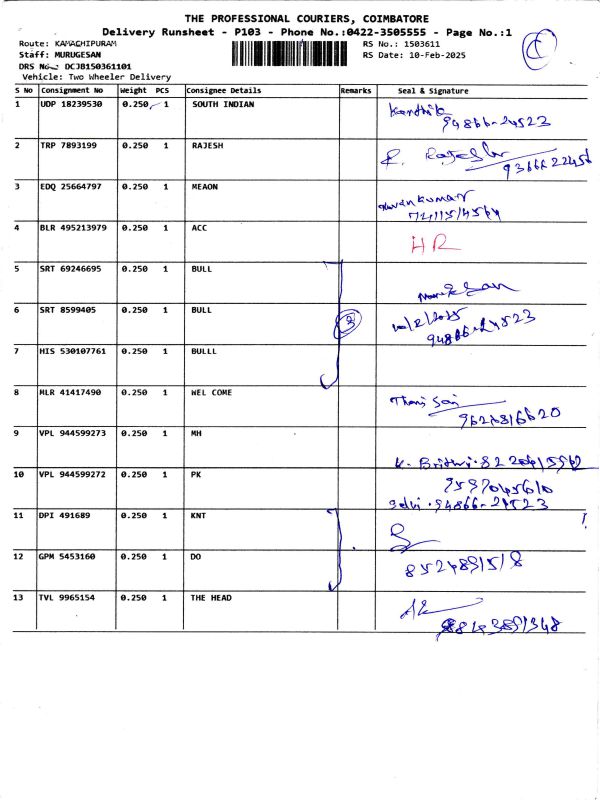 THE PROFESSIONAL COURIERS, COIMBATORE
Delivery Runsheet - P103 - Phone No.:0422-3505555 - Page No.:1
Route: KAMACHIPURAM RS No.: 1503611
Staff: MURUGESAN RS Date: 10-Feb-2025
DRS No.: DCJB150361101
Vehicle: Two Wheeler Delivery
S No Consignment No Weight PCS Consignee Details Remarks Seal & Signature
1 UDP 18239530 0.250 1 SOUTH INDIAN Karthik
94866-24523
2 TRP 7893199 0.250 1 RAJESH R. Rajesh
9366622456
3 EDQ 25664797 0.250 1 MEAON
4 BLR 495213979 0.250 1 ACC HR
5 SRT 69246695 0.250 1 BULL
6 SRT 8599405 0.250 1 BULL 3
94866-24523
7 HIS 530107761 0.250 1 BULLL
8 MLR 41417490 0.250 1 WEL COME
9 VPL 944599273 0.250 1 MH
K.
10 VPL 944599272 0.250 1 PK
Selvi. 94866-24523
11 DPI 491689 0.250 1 KNT
12 GPM 5453160 0.250 1 DO
13 TVL 9965154 0.250 1 THE HEAD